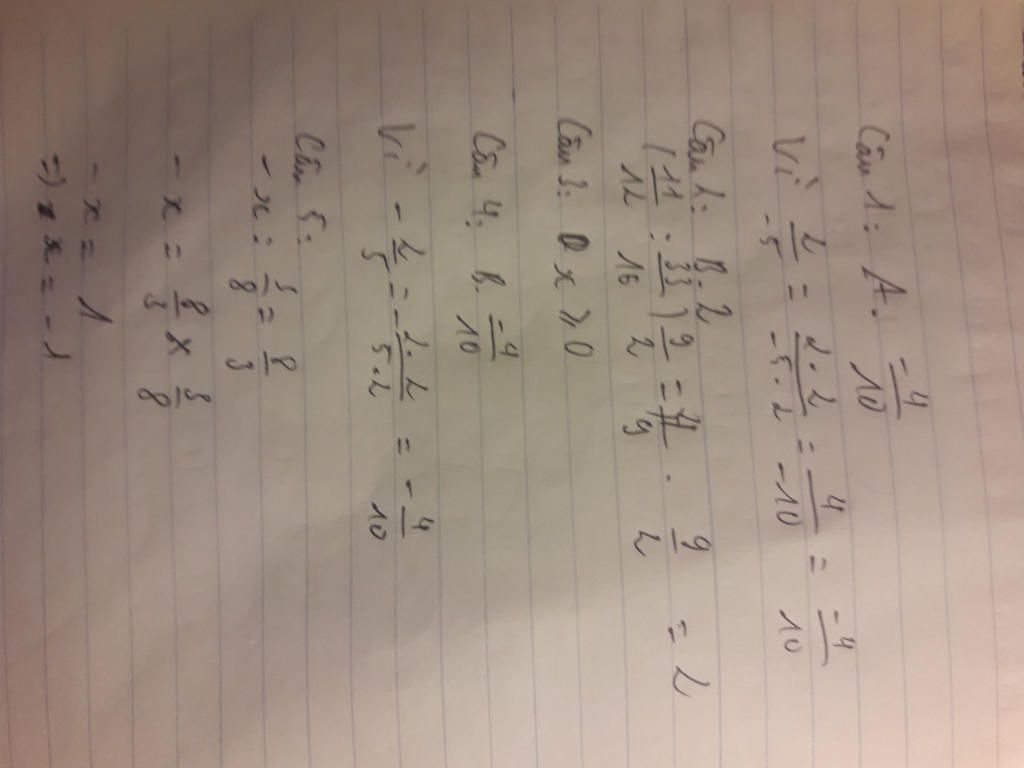 Câu 1: A. -4/10
Vì 2/-5 = 2.2/-5.2 = 4/-10 = -4/10
Câu 2: B. 2
(11/12 : 33/16) 9/2 = 4/9 . 9/2 = 2
Câu 3: x ≥ 0
Câu 4: B. -4/10
Vì -2/5 = -2.2/5.2 = -4/10
Câu 5:
-x : 3/8 = 8/3
-x = 8/3 x 3/8
-x = 1
=> x = -1